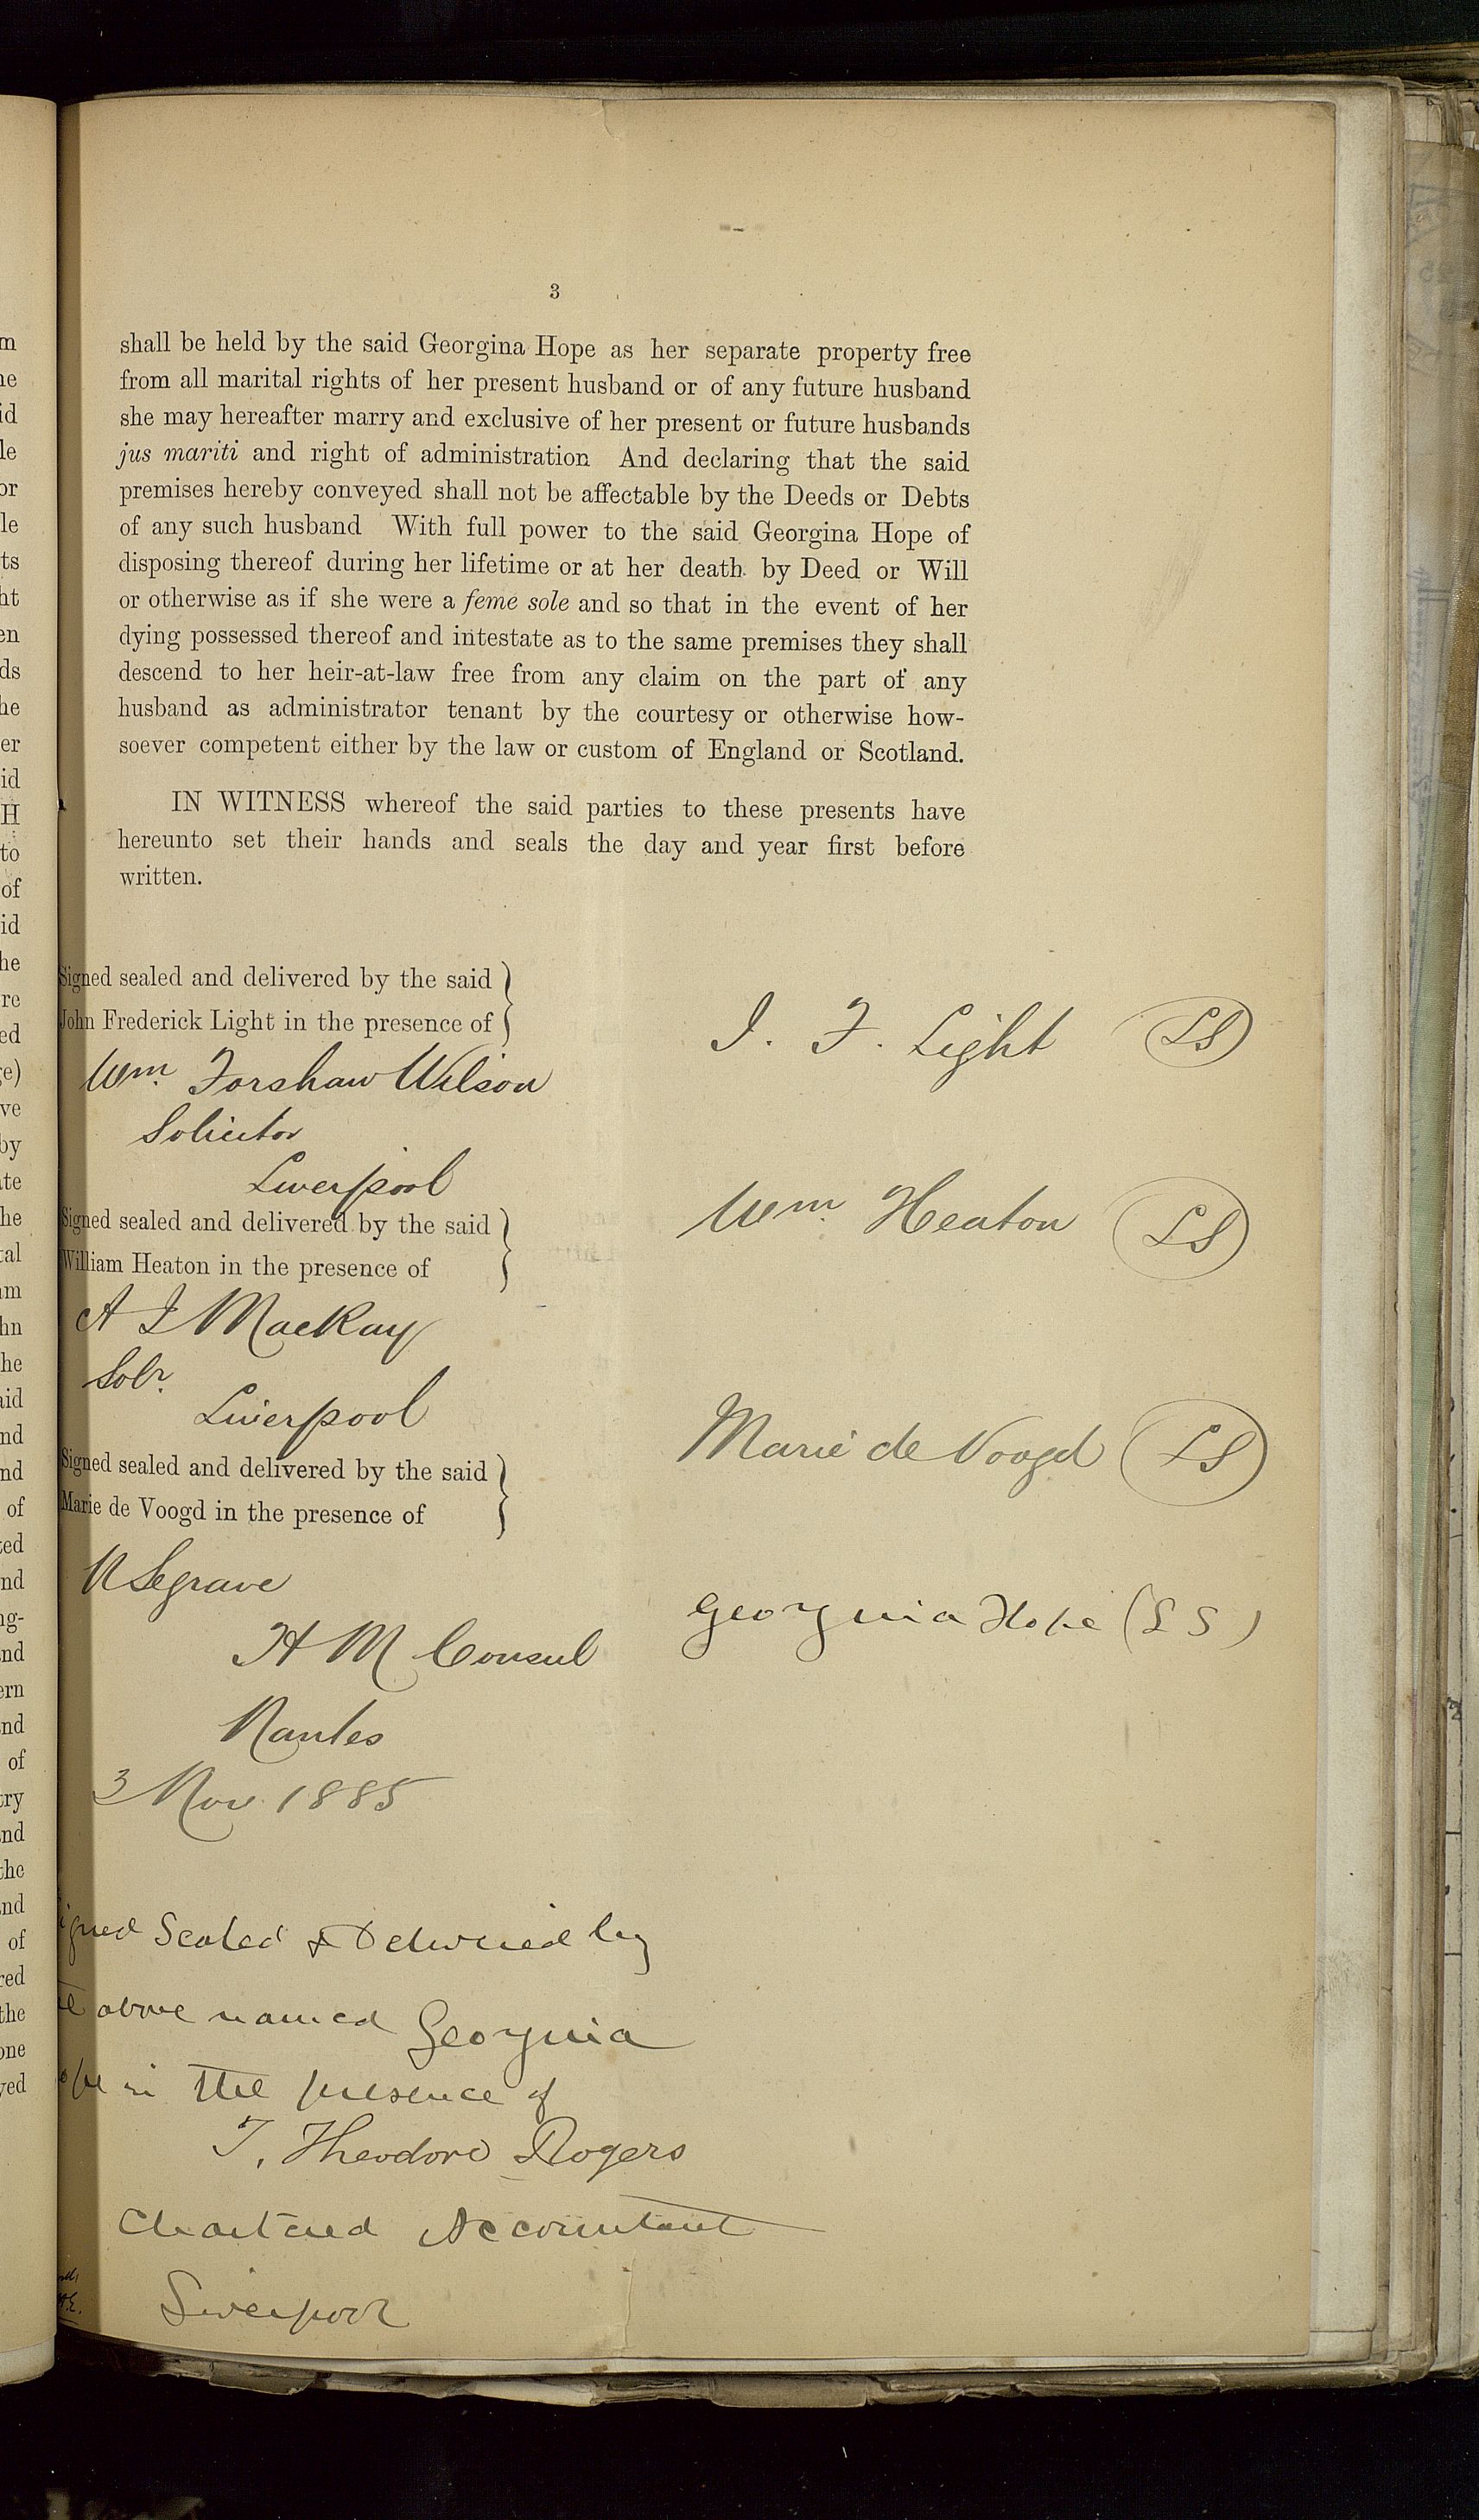 3
shall be held by the said Georgina Hope as her separate property free
from all marital rights of her present husband or of any future husband
she may hereafter marry and exclusive of her present or future husbands
jus mariti and right of administration And declaring that the said
premises hereby conveyed shall not be affectable by the Deeds or Debts
of any such husband With full power to the said Georgina Hope of
disposing thereof during her lifetime or at her death by Deed or Will
or otherwise as if she were a feme sole and so that in the event of her
dying possessed thereof and intestate as to the same premises they shall
descend to her heir-at-law free from any claim on the part of any
husband as administrator tenant by the courtesy or otherwise how-
soever competent either by the law or custom of England or Scotland.
IN WITNESS whereof the said parties to these presents have
hereunto set their hands and seals the day and year first before
written.
Signed sealed and delivered by the said
John Frederick Light in the presence of
J. F. Light LS
Wm. Forshaw Wilson
Solicitor
Liverpool
Signed sealed and delivered by the said
William Heaton in the presence of
Wm. Heaton LS
A J MacKay
Solr.
Liverpool
Signed sealed and delivered by the said
Marie de Voogd in the presence of
Marie de Voogd LS
Segrave
H M Consul
Nantes
3 Nov 1885
Georgina Hope (LS)
igned Sealed & Delivered by
above named Georgina
ope in the presence of
T. Theodore Rogers
Chartered Accountant
Liverpool